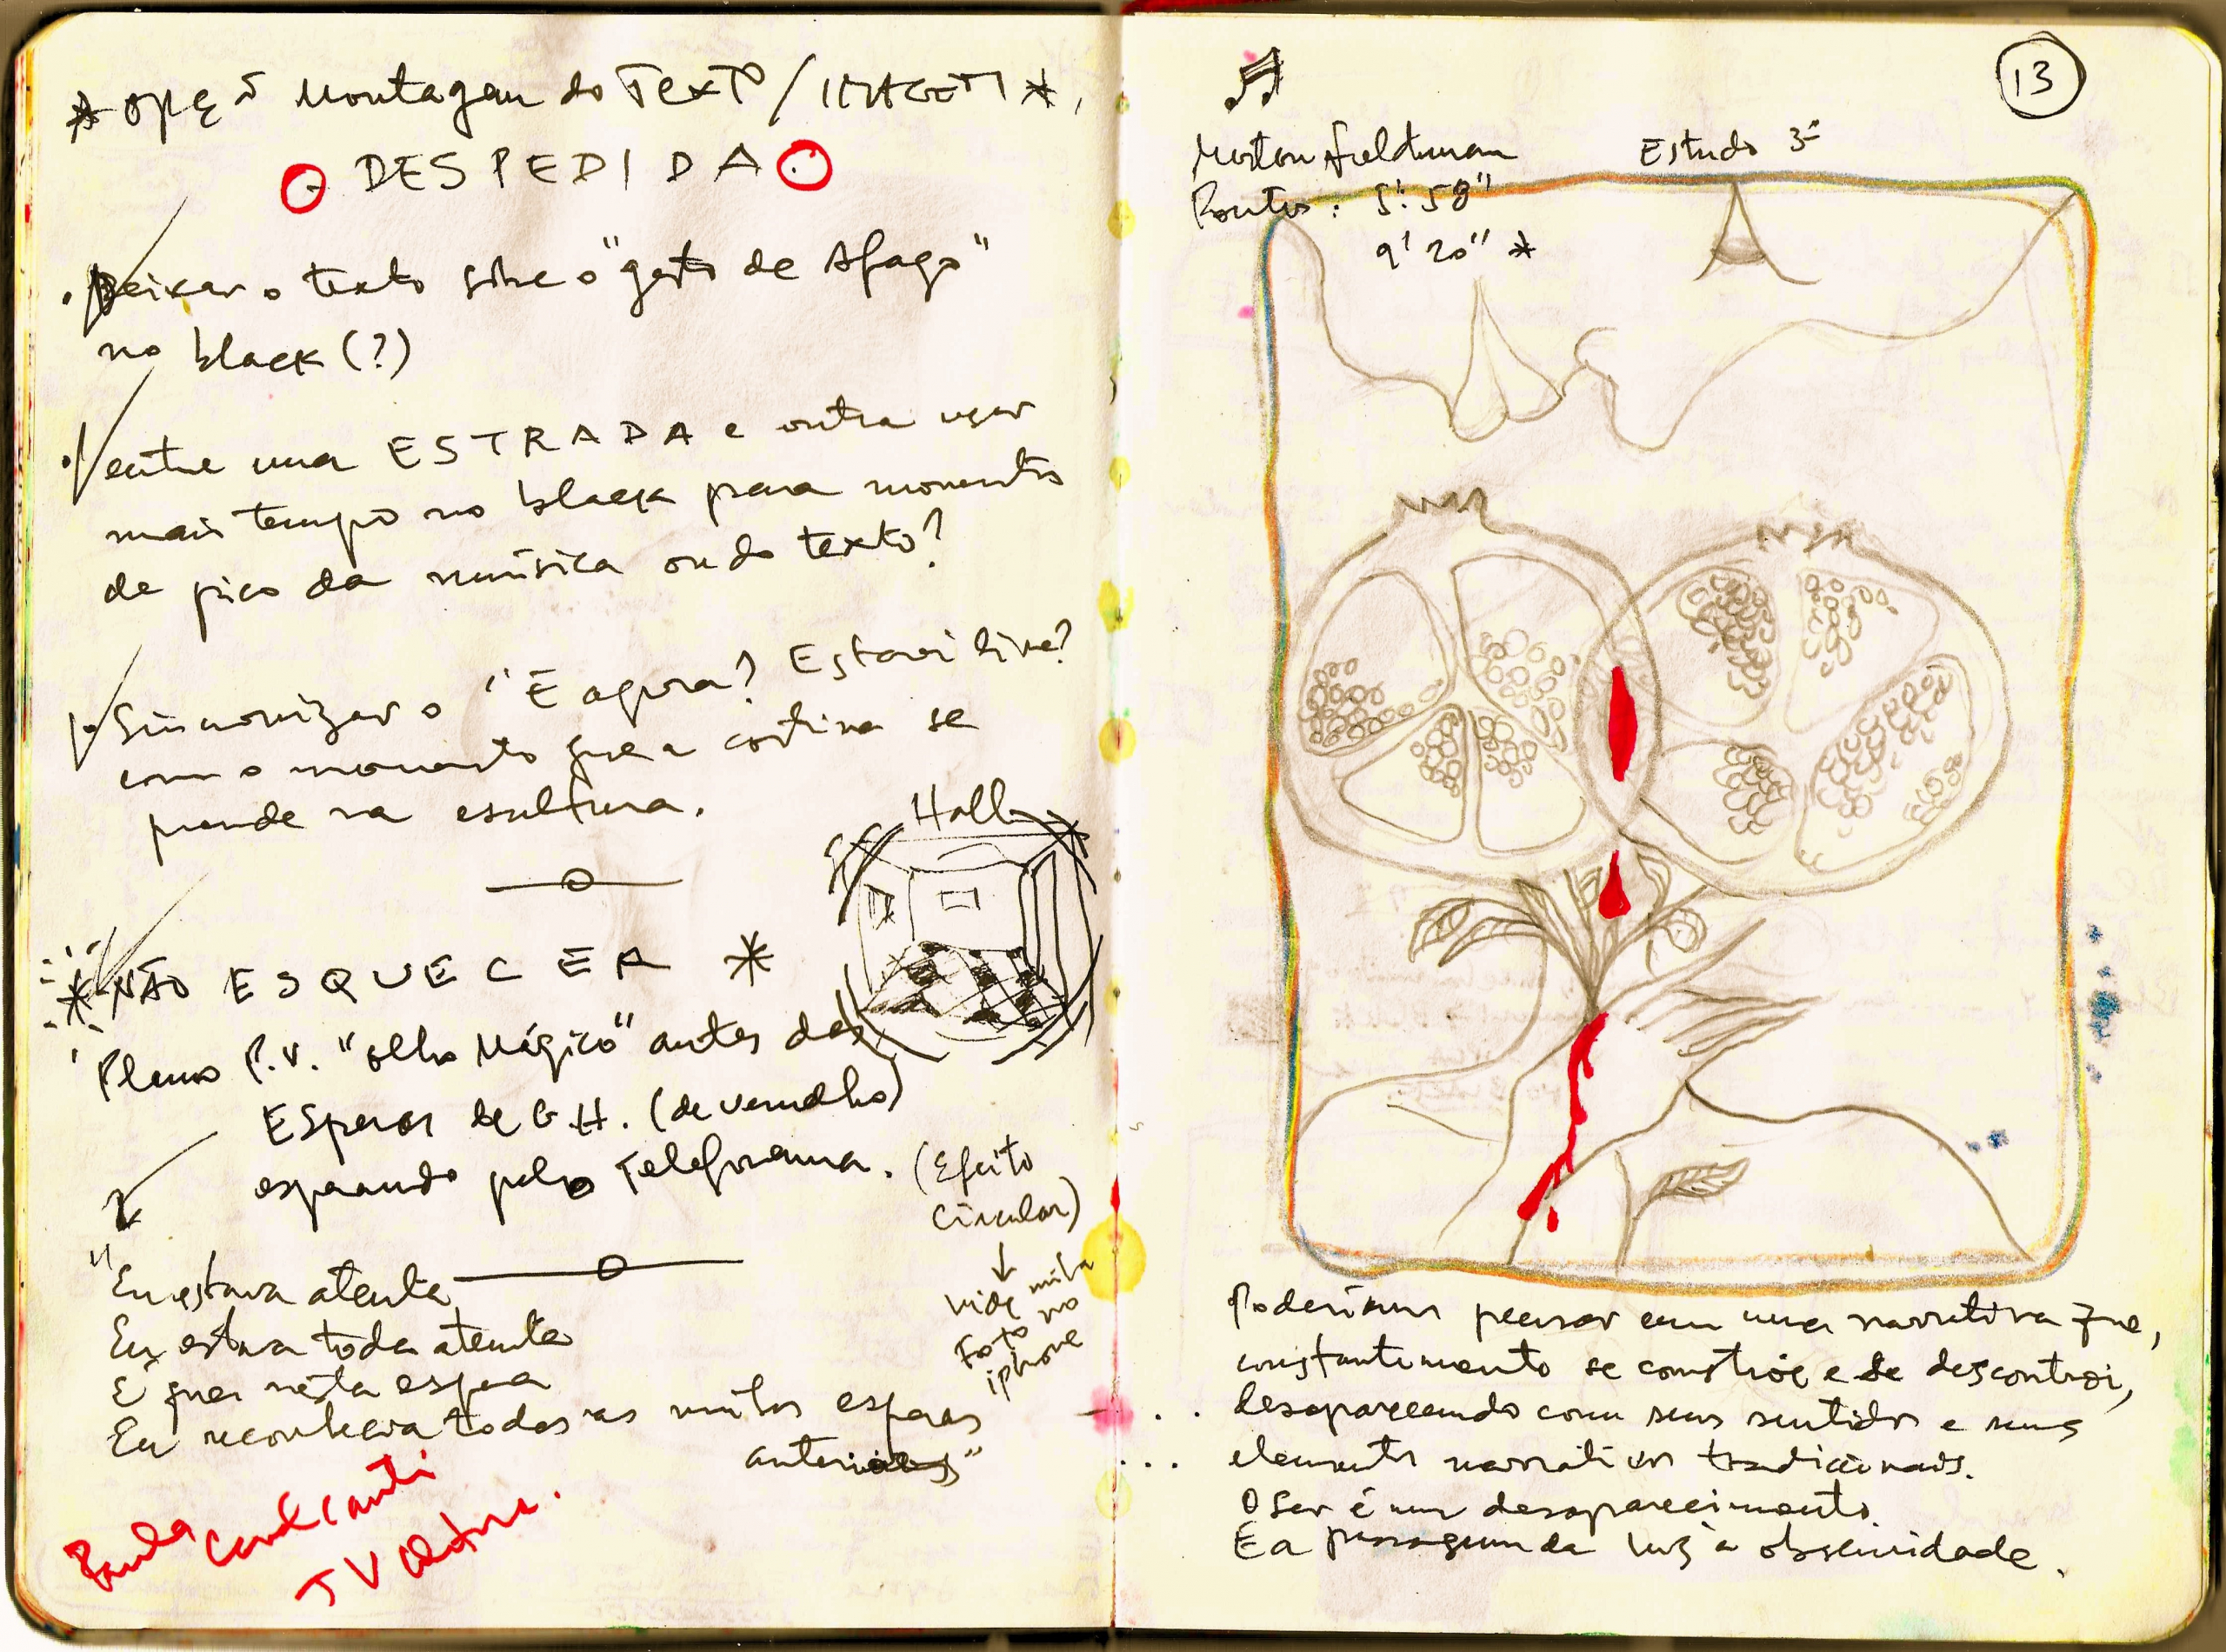 * OPÇÕ Montagem do TEXTO / IMAGEM *
DESPEDIDA
. Deixar o texto sobre o "gesto de Afago"
no black (?)
. entre uma ESTRADA e outra usar
mais tempo no black para momentos
de pico da música ou do texto?
. Sincronizar o "E agora? Estarei livre?
com o momento que a cortina se
prende na escultura.
Hall
* NÃO ESQUECER *
Plano P.V. "olho Mágico" antes das
Esperas de G.H. (de vermelho)
esperando pelo telefonema.
(Efeito
circular)
vide
foto no
iphone
"Eu estava atenta
Eu estava toda atenta
E que nesta espera
Eu reconhecia todas as muitas esperas
anteriores"
Paula
TV
13
Morton Feldman
Pontos: 5' 58"
9' 20" *
Estudo 3
Poderíamos pensar em uma narrativa que,
constantemente se constrói e se descontroi,
desaparecendo com seus sentidos e seus
elementos narrativos tradicionais.
O Ser é um desaparecimento.
É a passagem da luz à obscuridade.